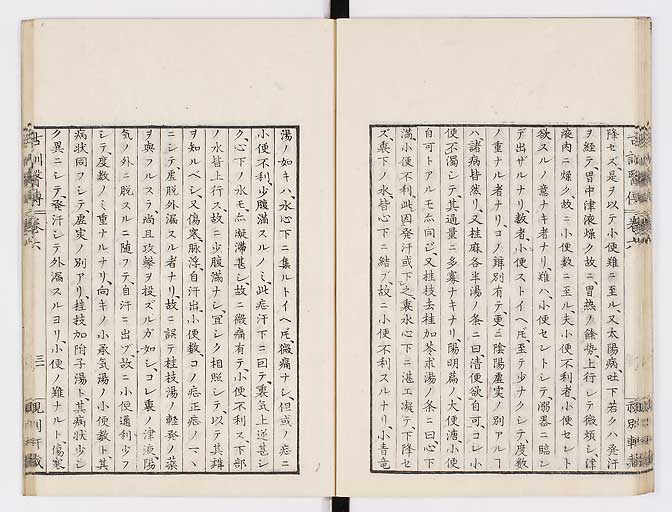 降セズ、是ヲ以テ小便難ニ至ル、又太陽病、吐下若クハ発汗
ヲ経テ、胃中津液燥ク故ニ、胃熱ノ餘勢上行シテ微煩シ、津
液内ニ燥ク故ニ、小便数ニ至ル、夫小便不利者、小便セント
欲スルノ意ナキ者ナリ、難ハ、小便セントシテ、溺器ニ臨シ
デ出ザルナリ、数者、小便ストイヘ𪜈、至テ少ナクシテ、度数
ノ重ナル者ナリ、コノ辨別有テ、更ニ陰陽虚実ノ別アルヿ
ハ、諸病皆然リ、又桂麻各半湯ノ条ニ曰、清便欲自可、コレ小
便不濁シテ、其通量ニ多寡ナキナリ、陽明篇ノ大便溏小便
自可トアルモ亦同シ、又桂枝去桂加苓朮湯ノ条ニ曰、心下
満、小便不利、此因発汗或下之、裏水心下ニ湛エ凝テ、下降セ
ズ、裏下ノ水皆心下ニ結ブ故ニ、小便不利スルナリ、小青竜
湯ノ如キハ、水心下ニ集ルトイヘ𪜈、微痛ナシ、但或ノ症ニ
小便不利、少腹満スルノミ、此症汗下ニ因テ、裏気上逆甚シ
ク、心下ノ水モ亦凝滞甚シ、故ニ微痛有テ、小便不利ス、下部
ノ水皆上行ス、故ニ少腹満ナシ、宜シク相照シテ、以テ其辨
ヲ知ルベシ、又傷寒脉浮、自汗出、小便数、コノ症正症ノ一、
ニシテ、虚脱外漏スル者ナリ、故ニ誤テ桂枝湯ノ軽発ノ薬
ヲ與フルスラ、尚且攻撃ヲ投ズルガ如シ、コレ裏ノ津液、陽
気ノ外ニ脱スルニ随フテ、自汗ニ出ヅ、故ニ小便通利少フ
シテ、度数ノミ重ナルナリ、向キノ小承気湯ノ小便数ト、其
病状同フシテ、虚実ノ別アリ、桂枝加附子湯ト、其病状少シ
ク異ニシテ、発汗シテ外漏スルヨリ、小便ノ難ナルト、傷寒
古訓醫傳 巻六 三一